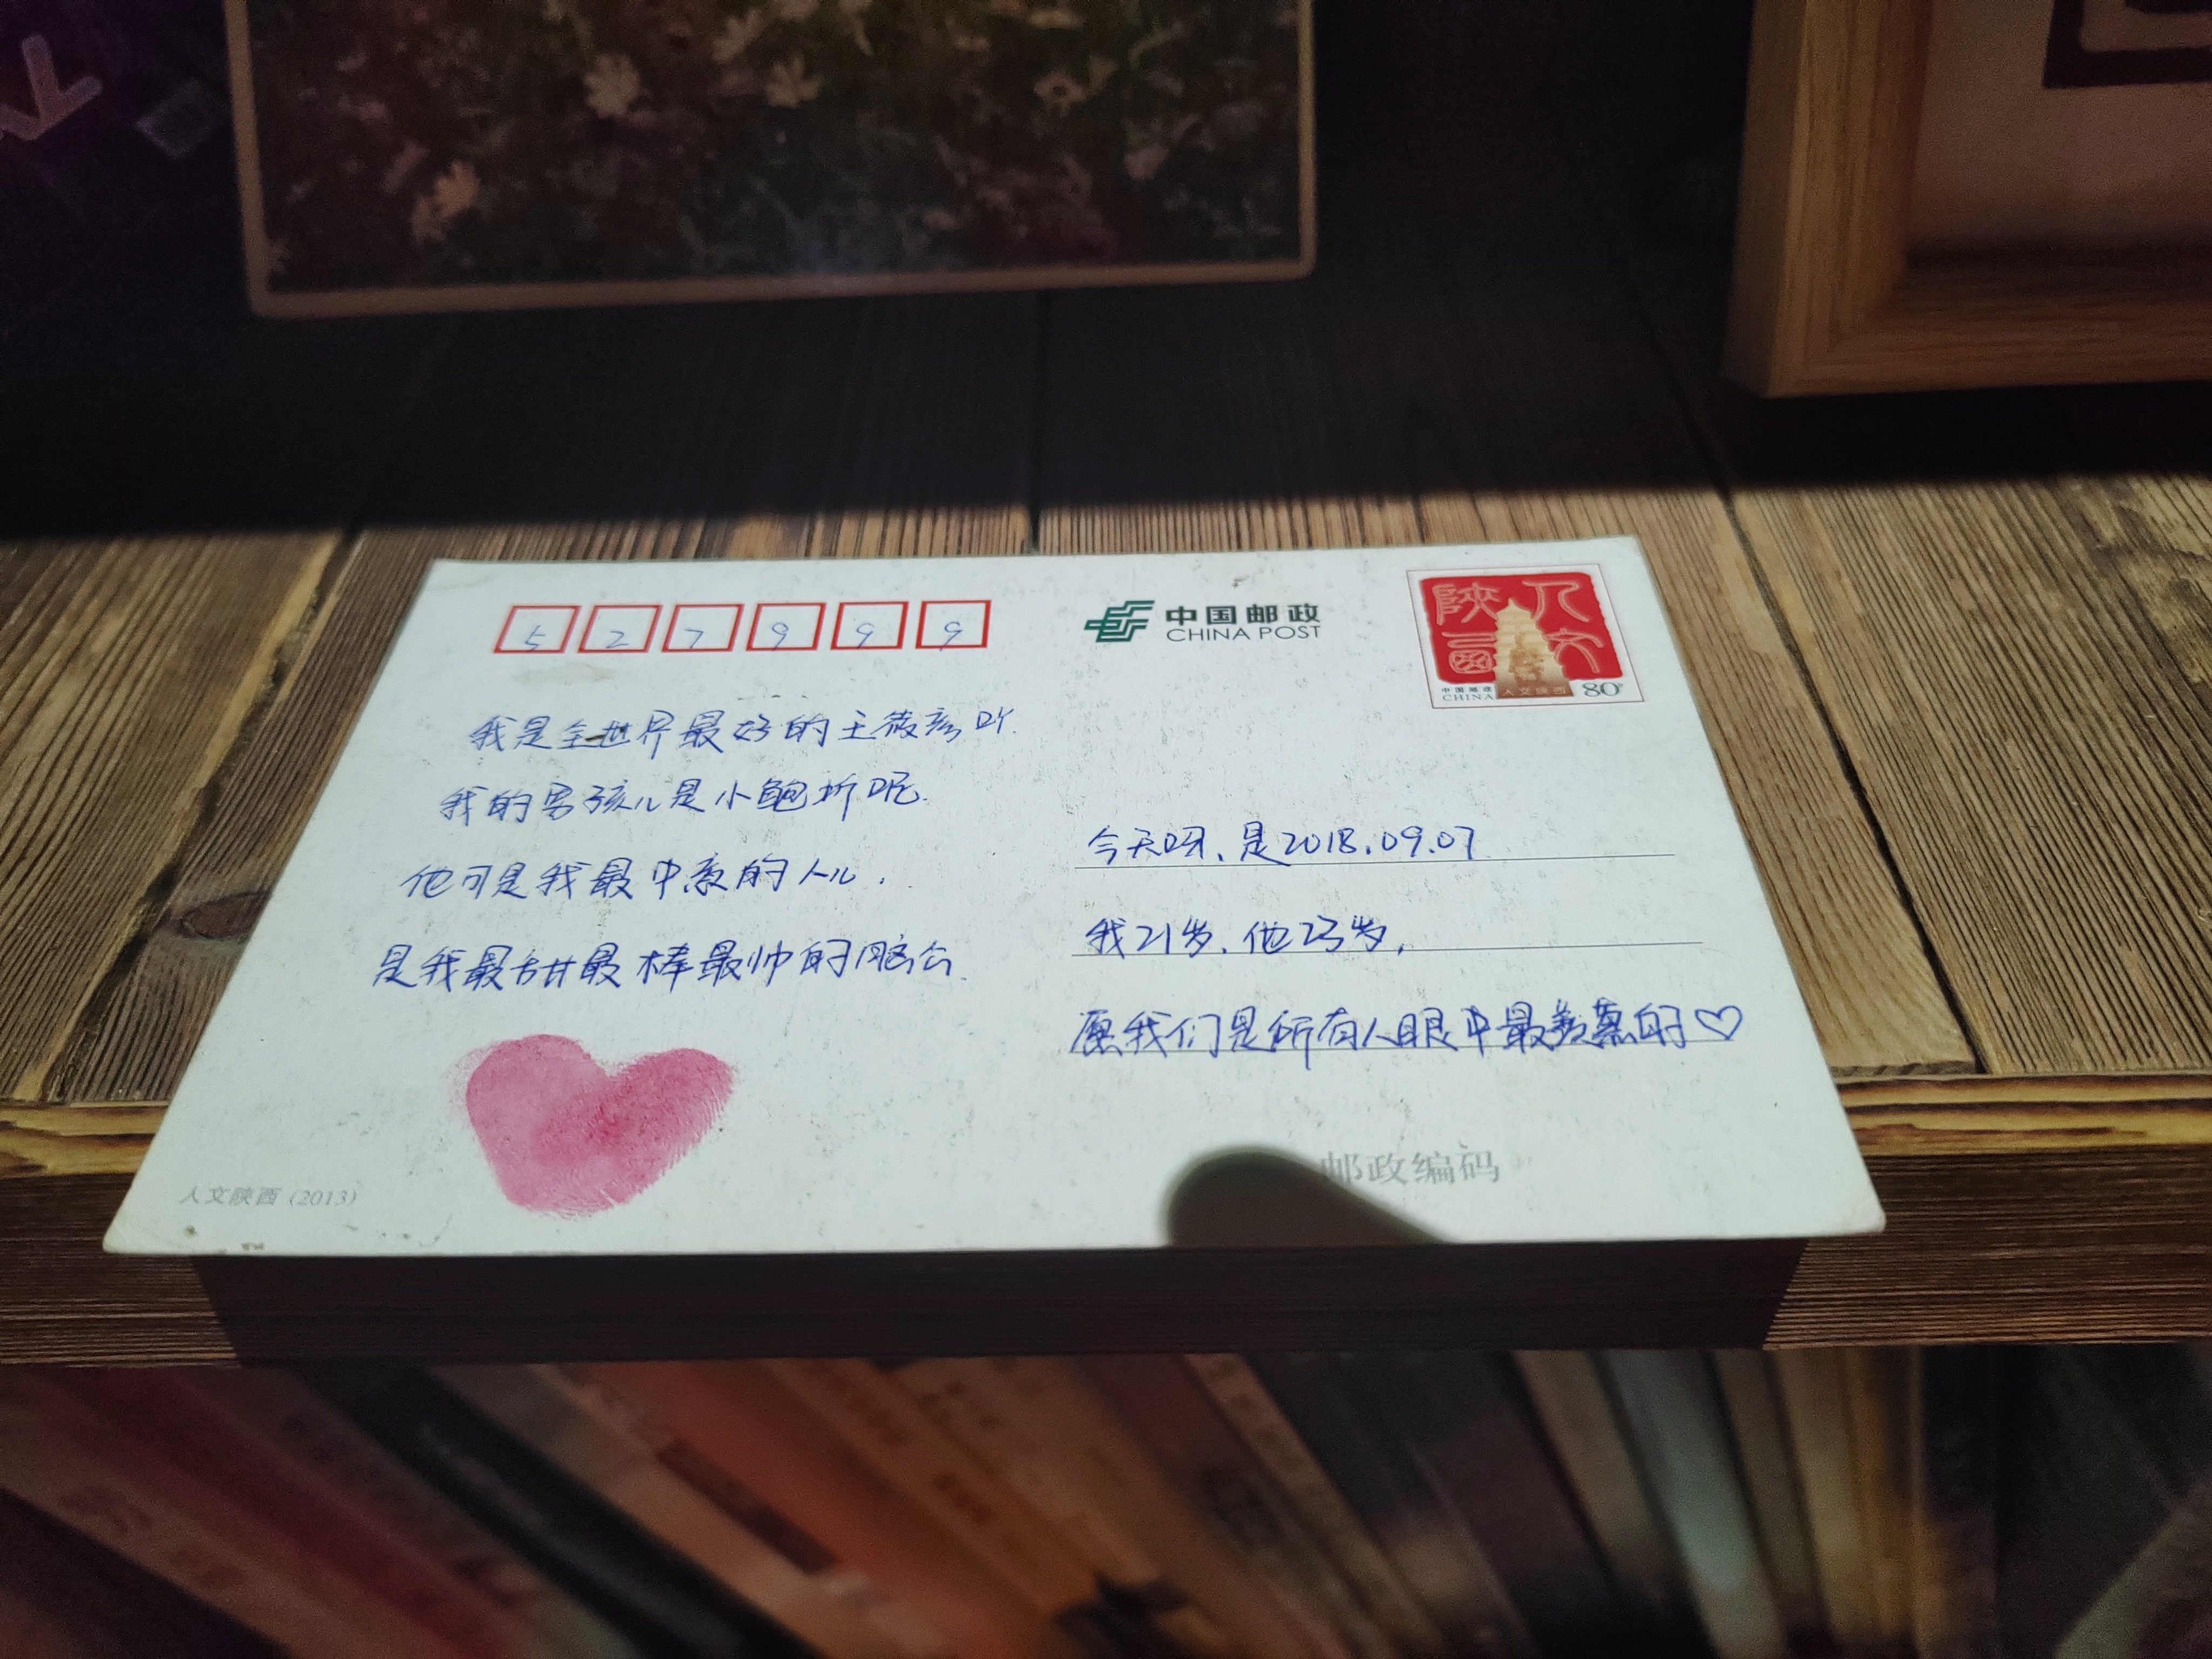 527999
中国邮政
CHINA POST
陕西 人文
中国邮政
CHINA
人文陕西
80分
我是全世界最好的王薇彦吖.
我的男孩儿是小鲍圻呢.
他可是我最中意的人儿.
是我最甜最棒最帅的脑公.
今天呀、是2018.09.07
我21岁、他23岁,
愿我们是所有人眼中最羡慕的♡
邮政编码
人文陕西 (2013)